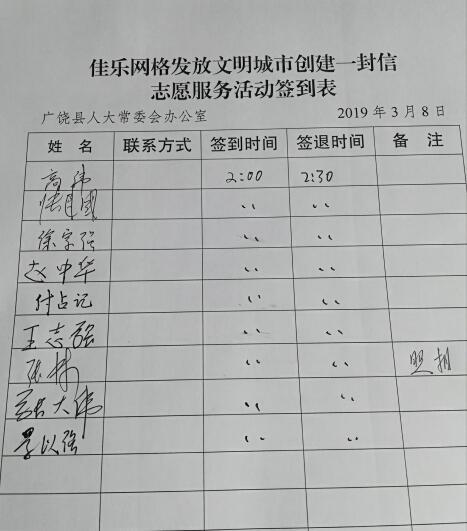 佳乐网格发放文明城市创建一封信
志愿服务活动签到表
广饶县人大常委会办公室 2019年3月8日
姓 名 联系方式 签到时间 签退时间 备 注
高伟 2:00 2:30
国 〃 〃
徐宗强 〃 〃
赵中华 〃 〃
付占记 〃 〃
王志强 〃 〃
张 〃 〃 照相
大伟 〃 〃
以强 〃 〃